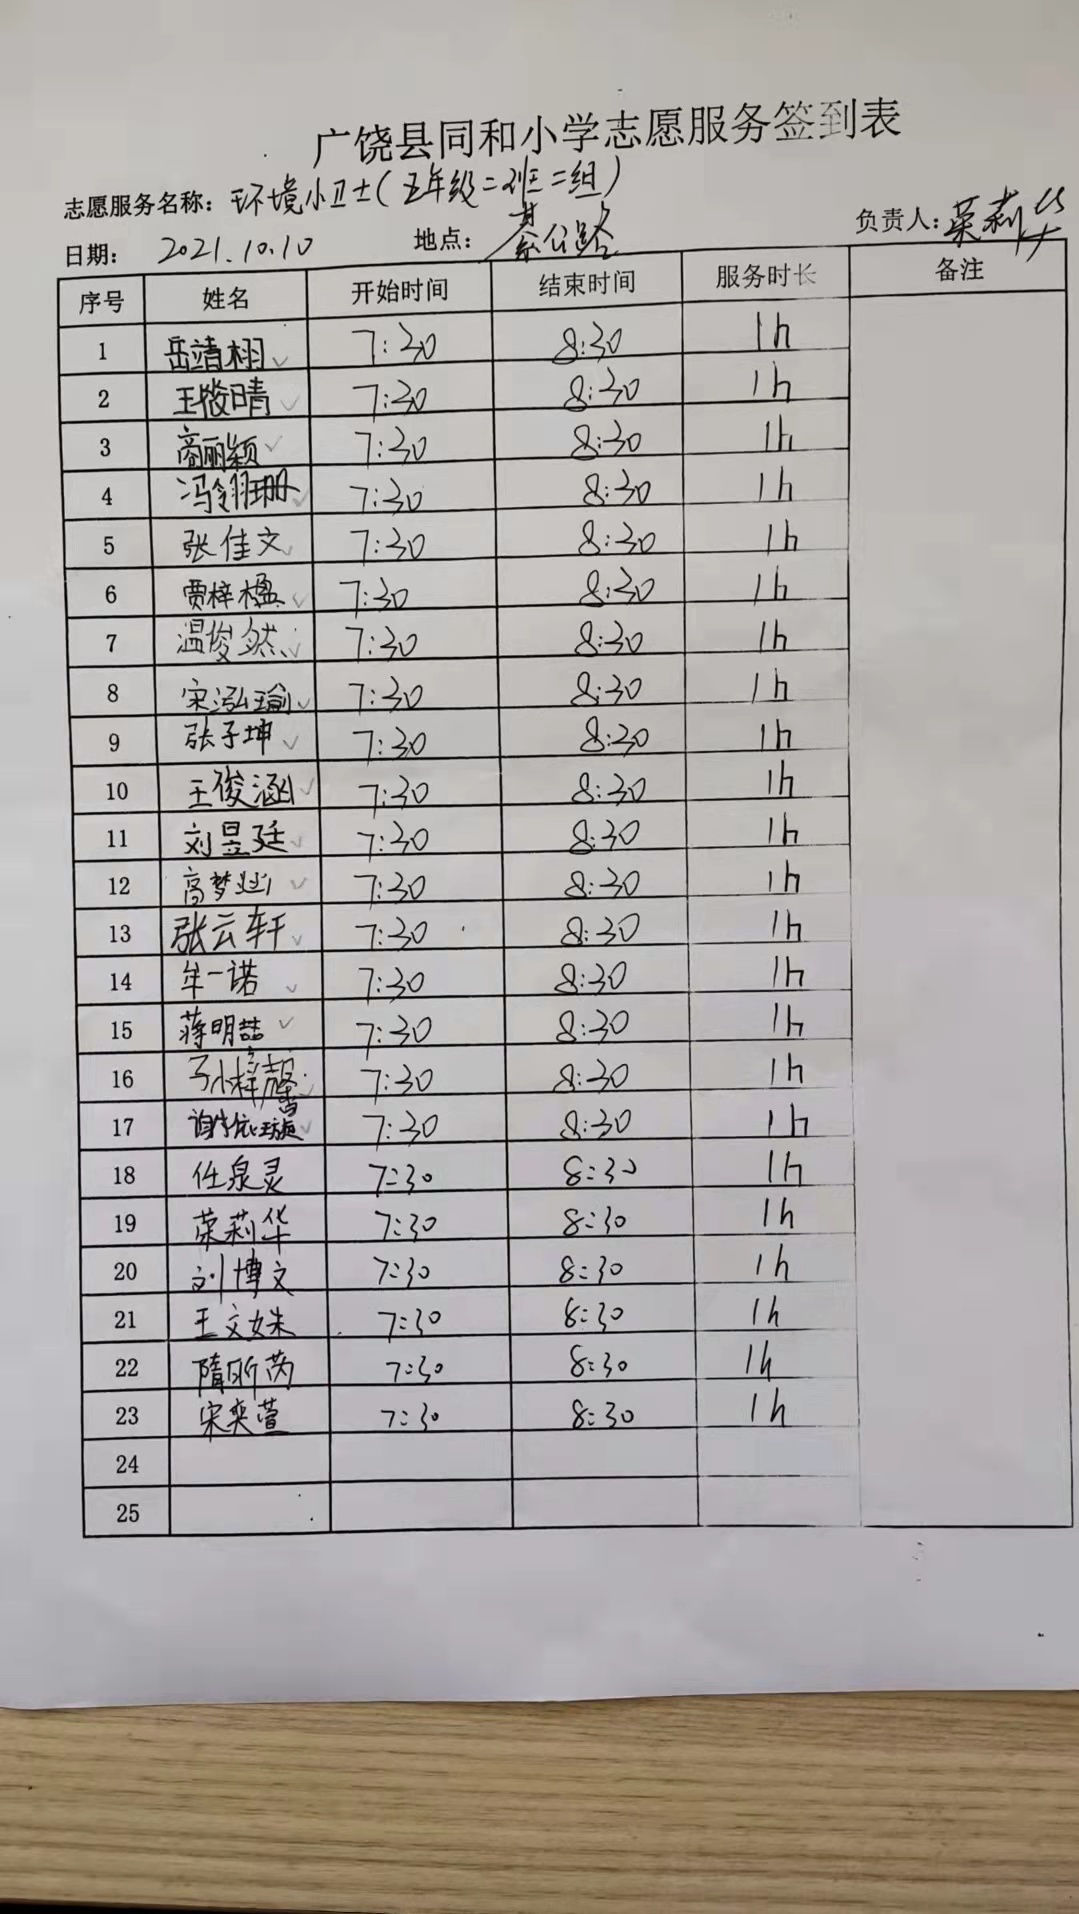 广饶县同和小学志愿服务签到表
志愿服务名称：环境小卫士（五年级二班二组）
日期： 2021.10.10 地点：綦公路 负责人：荣莉华
序号 姓名 开始时间 结束时间 服务时长 备注
1 岳靖栩 7:30 8:30 1h
2 7:30 8:30 1h
3 商丽颖 7:30 8:30 1h
4 冯翎珊 7:30 8:30 1h
5 张佳文 7:30 8:30 1h
6 贾梓楹 7:30 8:30 1h
7 温俊然 7:30 8:30 1h
8 宋泓瑜 7:30 8:30 1h
9 张子坤 7:30 8:30 1h
10 王俊涵 7:30 8:30 1h
11 刘昱廷 7:30 8:30 1h
12 高梦 7:30 8:30 1h
13 张云轩 7:30 8:30 1h
14 牟一诺 7:30 8:30 1h
15 蒋明喆 7:30 8:30 1h
16 孙梓馨 7:30 8:30 1h
17 7:30 8:30 1h
18 任泉灵 7:30 8:30 1h
19 荣莉华 7:30 8:30 1h
20 刘博文 7:30 8:30 1h
21 王文姝 7:30 8:30 1h
22 隋昕芮 7:30 8:30 1h
23 宋奕萱 7:30 8:30 1h
24
25